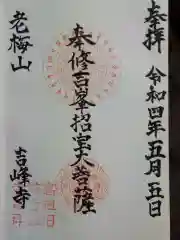 奉拝 令和四年五月五日
奉修吉峯招宝大菩薩
老梅山
吉峰寺